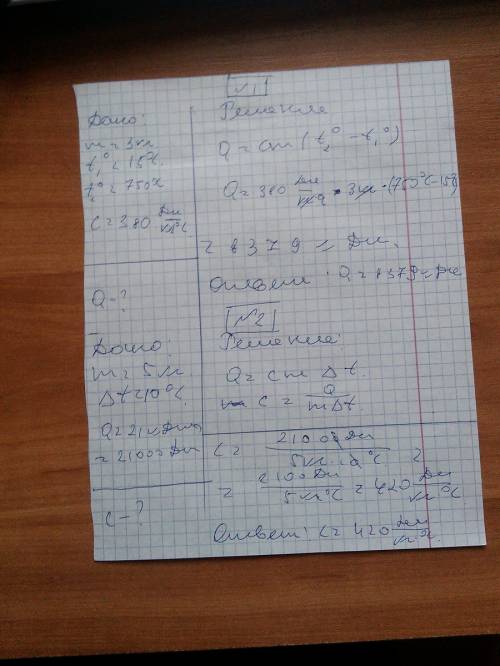 №1
Дано:
m = 3кг
t₁° = 15°C
t₂° = 750°C
C = 380 Дж/кг°C
Q - ?
Решение
Q = cm (t₂° - t₁°)
Q = 380 Дж/кг°C · 3кг · (750°C - 15°C)
= 8379 Дж.
Ответ: Q = 8379 Дж
№2
Дано:
m = 5 кг
Δt = 10°C.
Q = 21кДж
= 21000 Дж
C - ?
Решение:
Q = cm Δt.
c = Q/mΔt.
C = 21000 Дж / 5кг · 10°C =
= 2100 Дж / 5кг°C = 420 Дж/кг°C
Ответ: C = 420 Дж/кг°C.